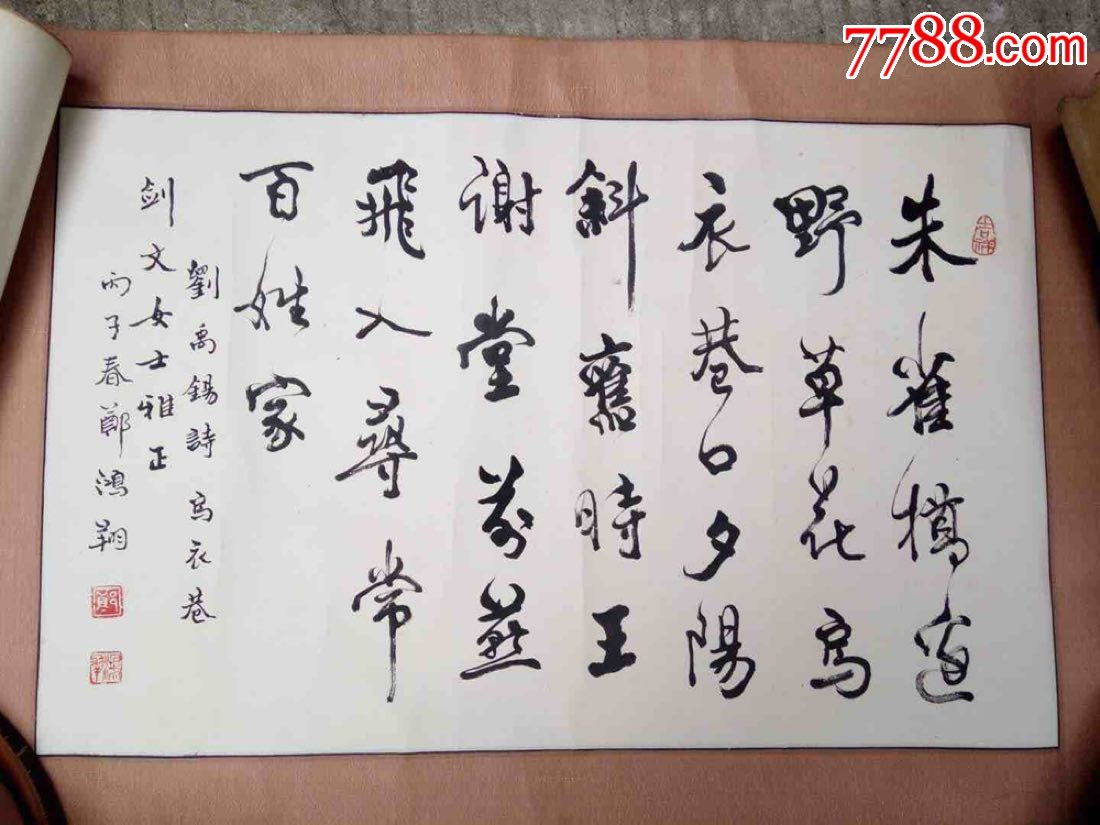 朱雀橋邊
野草花烏
衣巷口夕陽
斜舊時王
謝堂前燕
飛入尋常
百姓家
劉禹錫詩烏衣巷
剑文女士雅正
丙子春鄭鴻翔
7788.com